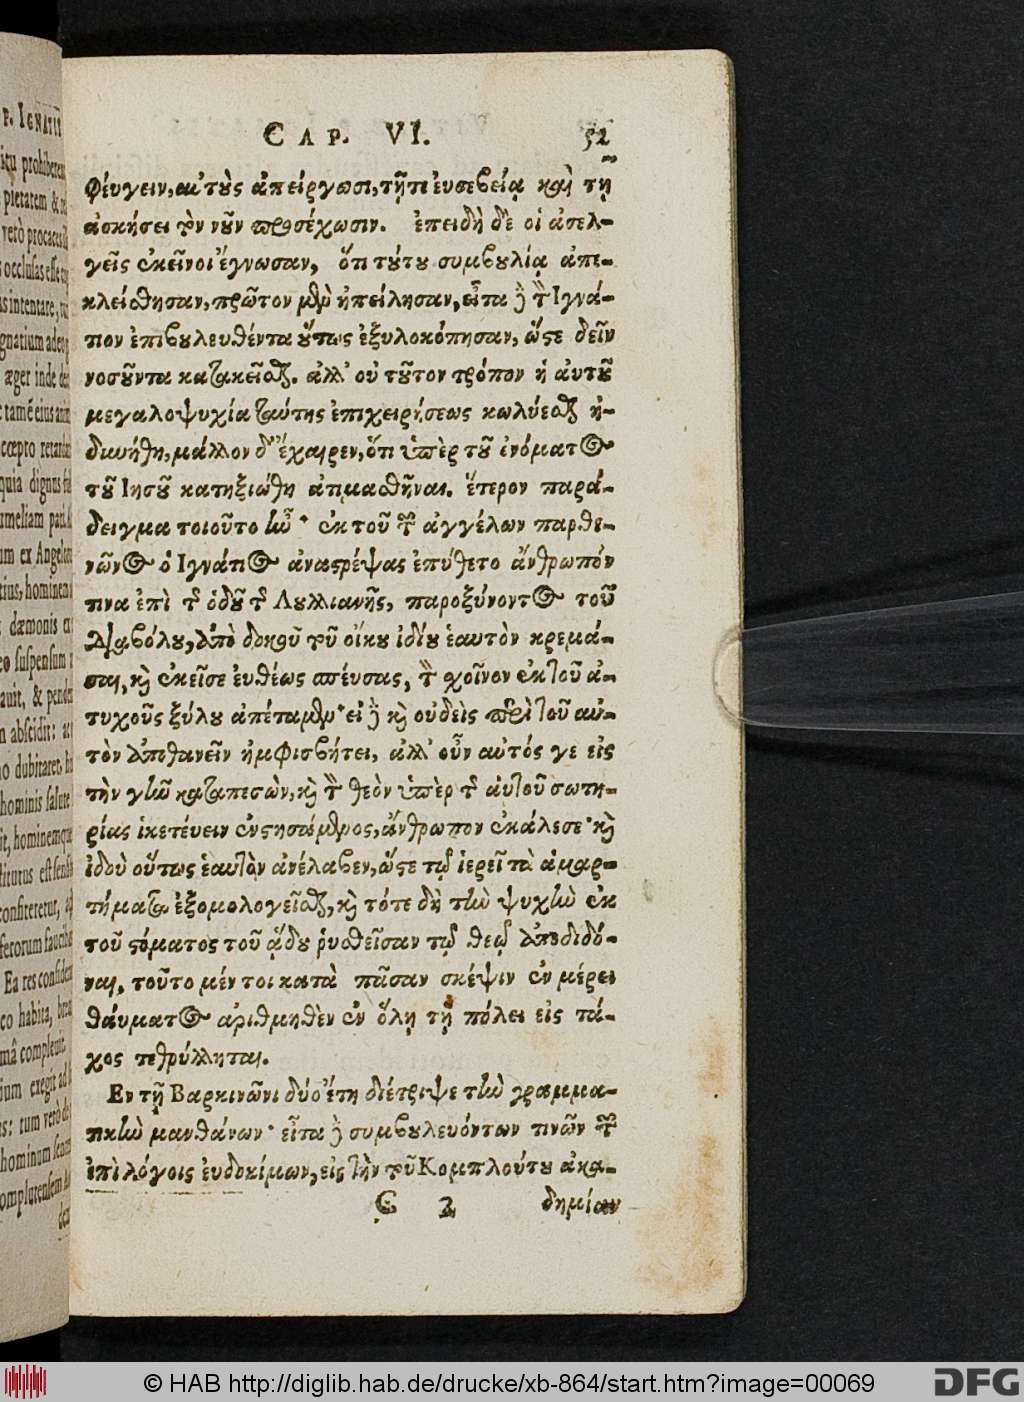 P. IGNATII
CAP. VI. 52
φεύγειν, αὐτοὺς ἀπείργωσι, τῇ τι εὐσεβείᾳ καὶ τῇ
ἀσκήσει τὸν νοῦν προσέχωσιν. ἐπειδὴ δὲ οἱ ἀσελ-
γεῖς ἐκεῖνοι ἔγνωσαν, ὅτι τούτου συμβουλίᾳ ἀπε-
κλείσθησαν, πρῶτον μὲν ἠπείλησαν, εἶτα δὲ τὸν Ιγνά-
τιον ἐπιβουλευθέντα οὕτως ἐξυλοκόπησαν, ὥστε δεῖν
νοσοῦντα κατακεῖσθαι. ἀλλ' οὐ τοῦτον τρόπον ἡ αὐτοῦ
μεγαλοψυχία ταύτης ἐπιχειρήσεως κωλύεσθαι ἠ-
δυνήθη, μᾶλλον δ' ἔχαιρεν, ὅτι ὑπὲρ τοῦ ἐνόματος
τοῦ Ιησοῦ κατηξιώθη ἀτιμασθῆναι. ἕτερον παρά-
δειγμα τοιοῦτο ἦν· ἐκ τοῦ τῶν ἀγγέλων παρθε-
νῶνος ὁ Ιγνάτιος ἀναστρέψας ἐπύθετο ἄνθρωπόν
τινα ἐπὶ τῆς ὁδοῦ τῆς Λυλλιανῆς, παροξύνοντος τοῦ
Διαβόλου, ἀπὸ δοκοῦ τοῦ οἴκου ἰδίου ἑαυτὸν κρεμά-
σαι, καὶ ἐκεῖσε εὐθέως σπεύσας, τὸν σχοῖνον ἐκ τοῦ ἀ-
τυχοῦς ξύλου ἀπέταμεν· εἰ δὲ καὶ οὐδεὶς περὶ τοῦ αὐ-
τὸν ἀποθανεῖν ἠμφισβήτει, ἀλλ' οὖν αὐτός γε εἰς
τὴν γῆν καταπεσὼν, καὶ τὸν θεὸν ὑπὲρ τῆς αὐτοῦ σωτη-
ρίας ἱκετεύειν ἐνστησάμενος, ἄνθρωπον ἐκάλεσε· καὶ
ἰδοὺ οὕτως ἑαυτὸν ἀνέλαβεν, ὥστε τῷ ἱερεῖ τὰ ἁμαρ-
τήματα ἐξομολογεῖσθαι, καὶ τότε δὴ τὴν ψυχὴν ἐκ
τοῦ στόματος τοῦ ᾅδου ῥυσθεῖσαν τῷ θεῷ ἀποδιδό-
ναι, τοῦτο μέν τοι κατὰ πᾶσαν σκέψιν ἐν μέρει
θαύματος ἀριθμηθὲν ἐν ὅλῃ τῇ πόλει εἰς τά-
χος τεθρύλληται.
Εν τῇ Βαρκινῶνι δύο ἔτη διέτριψε τὴν γραμμα-
τικὴν μανθάνων· εἶτα δὲ συμβουλευόντων τινῶν τῶν
ἐπὶ λόγοις εὐδοκίμων, εἰς τὴν τοῦ Κομπλούτου ἀκα-
G 2 δημίαν
© HAB http://diglib.hab.de/drucke/xb-864/start.htm?image=00069
DFG